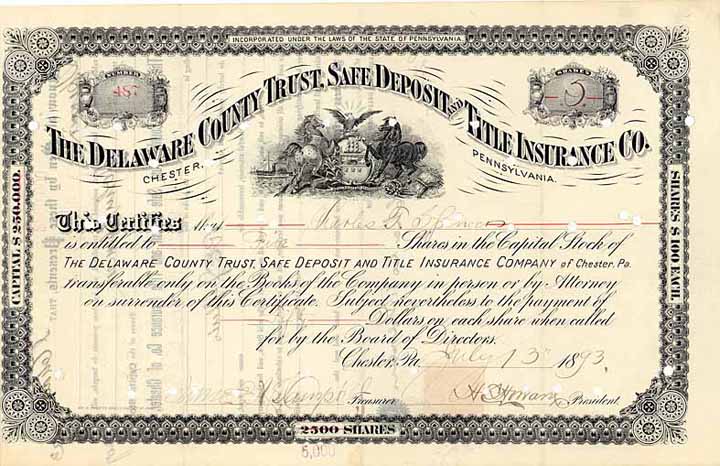 INCORPORATED UNDER THE LAWS OF THE STATE OF PENNSYLVANIA.
NUMBER
487
SHARES
5
THE DELAWARE COUNTY TRUST, SAFE DEPOSIT AND TITLE INSURANCE CO.
CHESTER.
PENNSYLVANIA.
CAPITAL $ 250,000.
SHARES $ 100 EACH.
This Certifies that Charles
is entitled to Five Shares in the Capital Stock of
THE DELAWARE COUNTY TRUST, SAFE DEPOSIT AND TITLE INSURANCE COMPANY of Chester, Pa.
transferable only on the Books of the Company in person or by Attorney
on surrender of this Certificate. Subject nevertheless to the payment of
Dollars on each share when called
for by the Board of Directors.
Chester, Pa. July 13th 1893.
Treasurer
President.
2500 SHARES
5,000